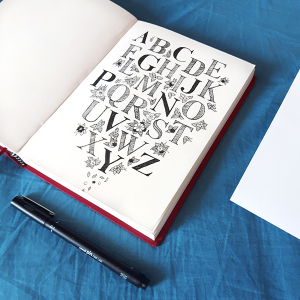 ABCDE
FGHIJK
LMNO
PQRST
UVW
XYZ